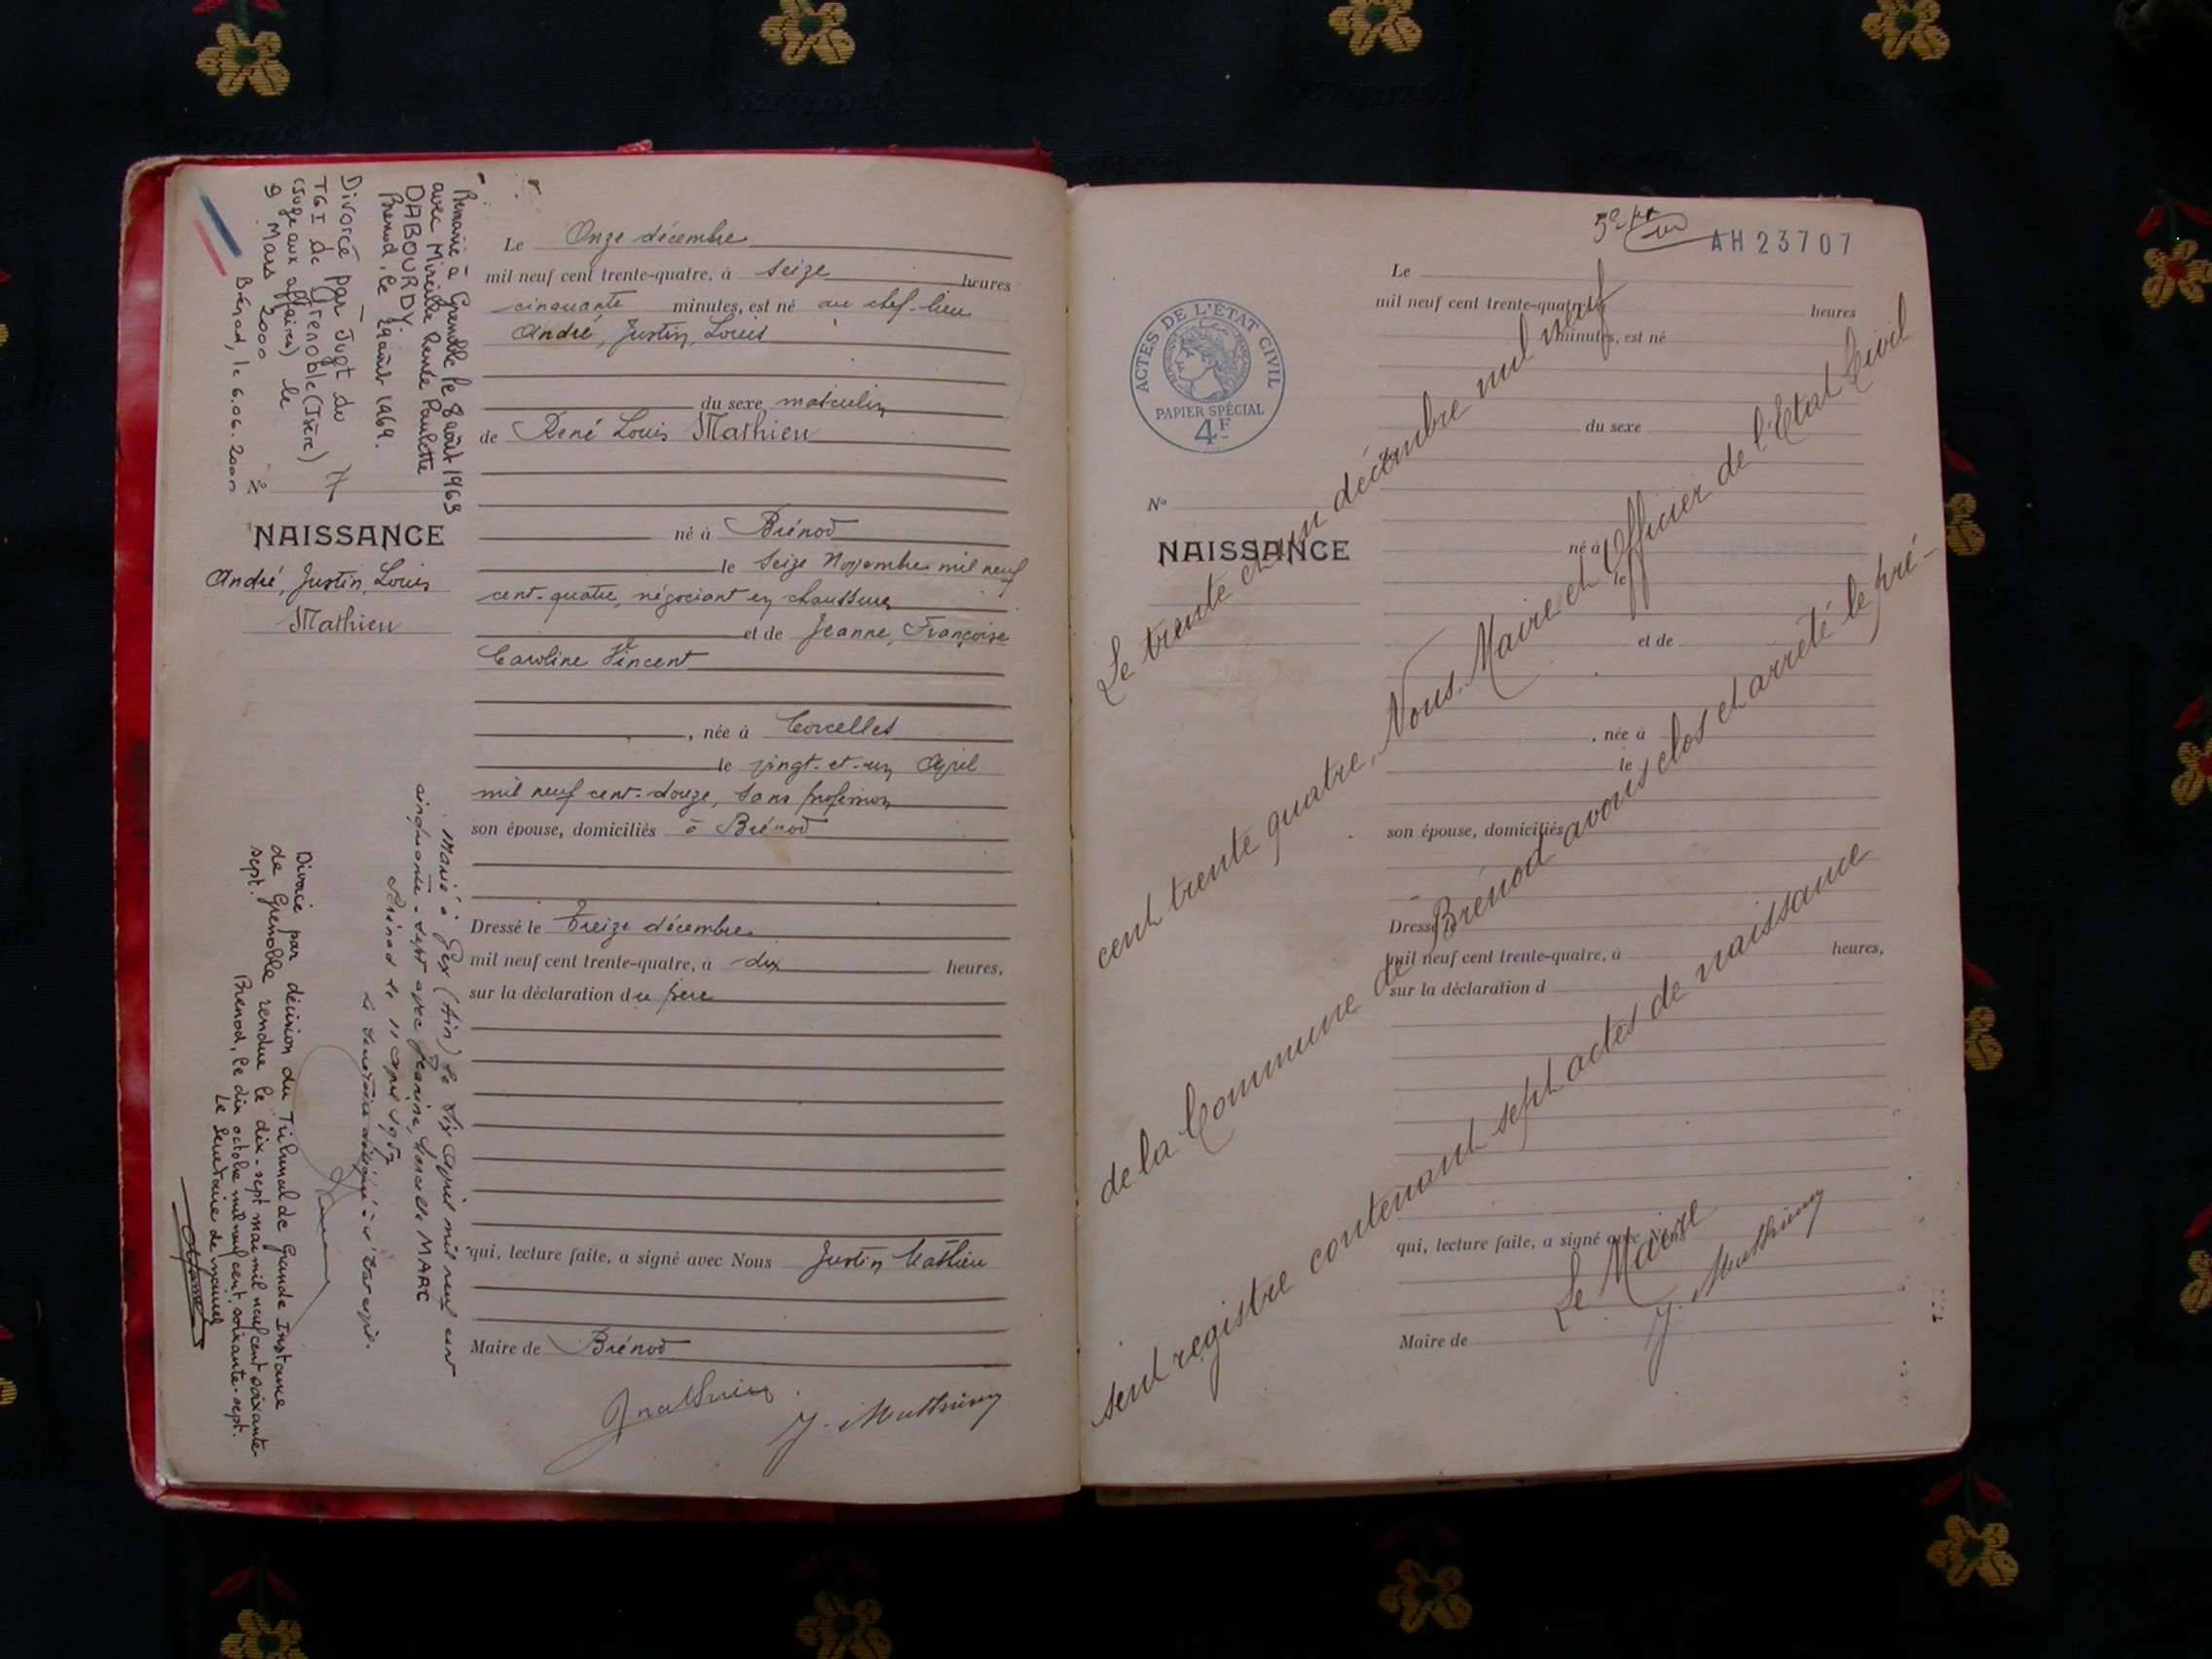 Remarié à Grenoble le 8 août 1969
avec Mireille Renée Paulette
DABOURDY.
Brénod, le 29 août 1969.
Divorcé par Jugt du
TGI de Grenoble (Isère)
(Juge aux affaires) le
9 Mars 2000
Brénod, le 6.06.2000
N° 7
NAISSANCE
André, Justin, Louis
Mathieu
Marié à Gex (Ain) le six Avril mil neuf cent
cinquante-sept avec Jeanine, Marcelle MARC
Brénod le 11 Avril 1957
Le Secrétaire délégué à l'Etat civil.
Divorcé par décision du Tribunal de Grande Instance
de Grenoble rendue le dix-sept mai mil neuf cent soixante-
sept.
Brénod, le dix octobre mil neuf cent soixante-sept.
Le Secrétaire de mairie
Le Onze décembre
mil neuf cent trente-quatre, à seize heures
cinquante minutes, est né au chef-lieu
André, Justin, Louis
du sexe masculin
de René Louis Mathieu
né à Brénod
le seize Novembre mil neuf
cent-quatre, négociant en chaussures
et de Jeanne, Françoise
Caroline Vincent
, née à Corcelles
le vingt-et-un Avril
mil neuf cent-douze, sans profession
son épouse, domiciliés à Brénod
Dressé le Treize décembre
mil neuf cent trente-quatre, à dix heures,
sur la déclaration du père
qui, lecture faite, a signé avec Nous Justin Mathieu
Maire de Brénod
J. Mathieu
AH23707
ACTES DE L'ÉTAT CIVIL
PAPIER SPÉCIAL
4F
N°
NAISSANCE
Le
mil neuf cent trente-quatre, à heures
minutes, est né
du sexe
de
né à
le
et de
, née à
le
son épouse, domiciliés
Dressé le
mil neuf cent trente-quatre, à heures,
sur la déclaration d
qui, lecture faite, a signé avec Nous
Maire de
Le trente et un décembre mil neuf
cent trente quatre, Nous Maire et Officier de l'Etat Civil
de la Commune de Brénod avons clos et arreté le pré-
sent registre contenant sept actes de naissance
Le Maire
J. Mathieu